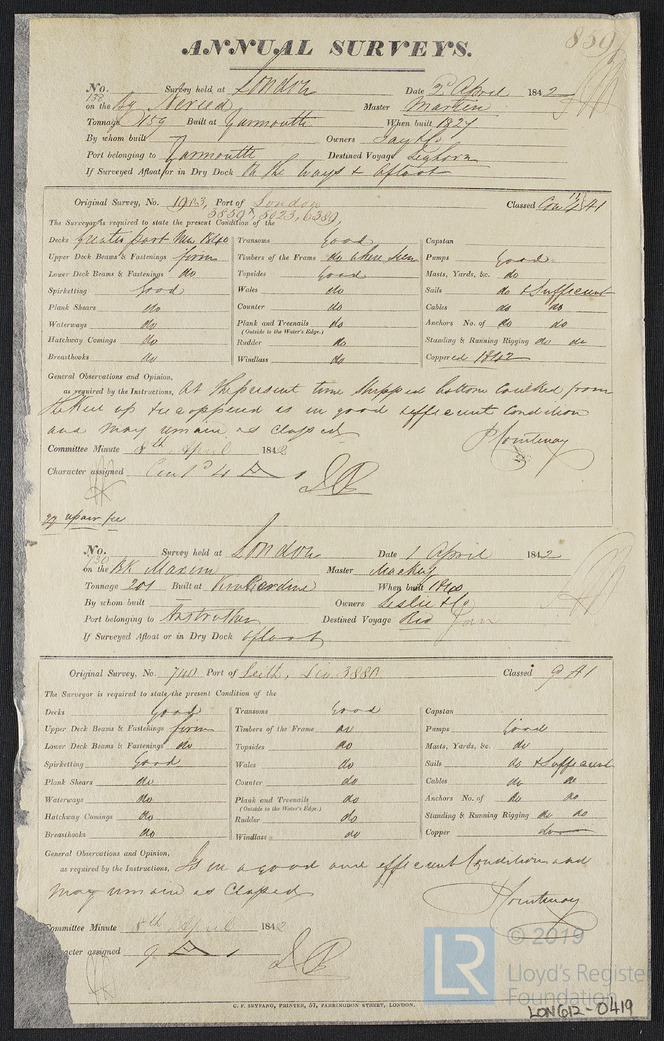 ANNUAL SURVEYS. 859
No. Survey held at London Date 2d April 1842
on the Bg Nereid Master Martin
Tonnage 159 Built at Yarmouth When built 1827
By whom built Owners
Port belonging to Yarmouth Destined Voyage Leghorn
If Surveyed Afloat or in Dry Dock On the Ways & afloat
Original Survey, No. Port of London Classed
5850 5023, 6380,
The Surveyor is required to state the present Condition of the
Decks greater part New 1840 Transoms Good Capstan
Upper Deck Beams & Fastenings firm Timbers of the Frame do where seen Pumps Good
Lower Deck Beams & Fastenings do Topsides Good Masts, Yards, &c. do
Spirketting Good Wales do Sails do & Sufficient
Plank Shears do Counter do Cables do do
Waterways do Plank and Treenails do Anchors No. of do do
(Outside to the Water's Edge.)
Hatchway Comings do Rudder do Standing & Running Rigging do do
Breasthooks do Windlass do Coppered 1842
General Observations and Opinion,
as required by the Instructions, At the present time stripped bottom caulked from
& recoppered is in good & efficient Condition
and may remain as Classed
P Courtenay
Committee Minute 8th April 1842
Character assigned
No. Survey held at London Date 1 April 1842
on the Bk Maxim Master Mackey
Tonnage 201 Built at Kincardine When built 1840
By whom built Owners Leslie & Co
Port belonging to Anstruther Destined Voyage Rio Jan
If Surveyed Afloat or in Dry Dock afloat
Original Survey, No. 740 Port of Leith, Liv. 3880 Classed 9 A1
The Surveyor is required to state the present Condition of the
Decks Good Transoms Good Capstan
Upper Deck Beams & Fastenings firm Timbers of the Frame do Pumps Good
Lower Deck Beams & Fastenings do Topsides do Masts, Yards, &c. do
Spirketting Good Wales do Sails do & Sufficient
Plank Shears do Counter do Cables do do
Waterways do Plank and Treenails do Anchors No. of do do
(Outside to the Water's Edge.)
Hatchway Comings do Rudder do Standing & Running Rigging do do
Breasthooks do Windlass do Copper do
General Observations and Opinion,
as required by the Instructions, Is in a good and efficient Condition and
may remain as Classed
P Courtenay
Committee Minute 8th April 1842
Character assigned 9 A 1
C. F. SEYFANG, PRINTER, 57, FARRINGDON STREET, LONDON.
LR © 2019
Lloyd's Register
Foundation
LON612-0419